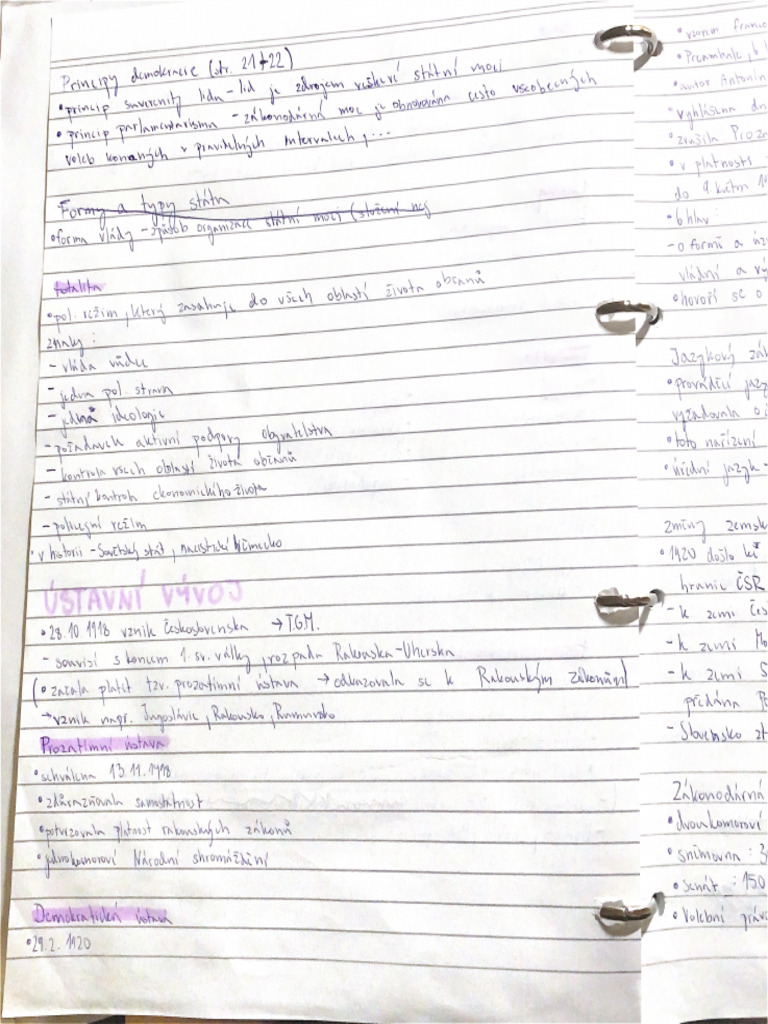 Principy demokracie (str. 21+22)
• princip suverenity lidu - lid je zdrojem veškeré státní moci
• princip parlamentarismu - zákonodárná moc je obnovována cesto všeobecných
voleb konaných v pravidelných intervalech, ...
Formy a typy státu
• forma vlády - způsob organizace státní moci (složení
totalita
• pol. režim, který zasahuje do všech oblastí života občanů
znaky:
- vláda vůdce
- jedna pol. strana
- jedná ideologie
- požadavek aktivní podpory obyvatelstva
- kontrola všech oblastí života občanů
- státní kontrola ekonomického života
- policejní režim
• v historii - Sovětský stát, nacistické Německo
ÚSTAVNÍ VÝVOJ
• 28.10 1918 vznik Československa → TGM.
- souvisí s koncem 1. sv. války, rozpadu Rakouska-Uherska
(• začala platit tzv. prozatímní ústava → odkazovala se k Rakouským zákonům)
→ vznik např. Jugoslávie, Rakousko, Rumunsko
Prozatímní ústava
• schválena 13.11.1918
• zdůrazňovala samostatnost
• potvrzovala platnost rakouských zákonů
• jednokomorové Národní shromáždění
Demokratická ústava
• 29.2.1920
• vzorem franco
• Preambule, 6 h
• autor Antonín
vyhlášena dn
• zrušila Proz
• v platnosti
do 9. květn 19
• 6 hlav:
- o formě a úz
vládní a vý
• hovoří se o
Jazykový zák
• prováděcí jaz
vyžadovala o
• toto nařízení
• úřední jazyk -
změny zemsk
• 1920 došlo k
hranic ČSR
- k zemi Čes
- k zemi Mo
- k zemi S
předána Po
- Slovensko zt
Zákonodárná
• dvoukomorové
• sněmovna: 3
• Senát: 150
• Volební práv